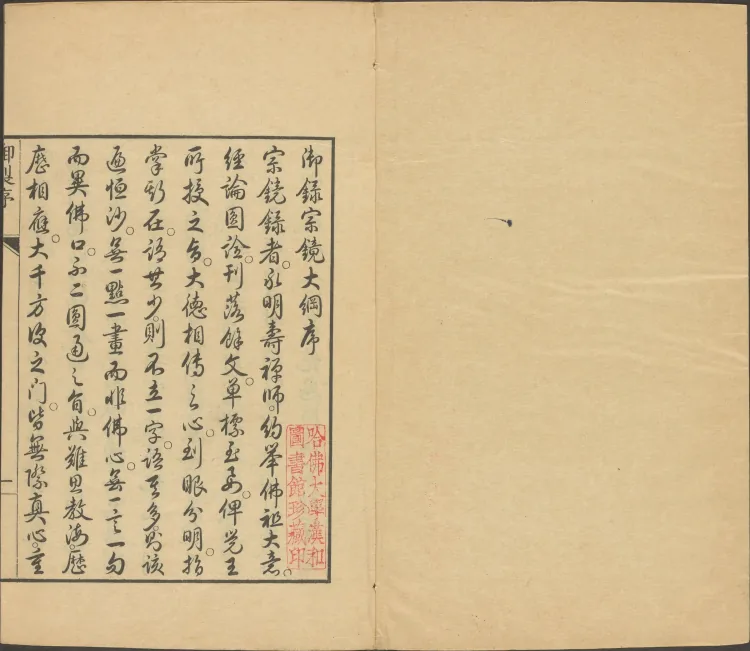 御錄宗鏡大綱序
宗鏡錄者。永明壽禪師。約舉佛祖大意。
經論圓詮。刊落餘文。單標至要。俾覺王
所授之旨。大德相傳之心。到眼分明。指
掌斯在。語其少。則不立一字。語其多。則該
遍恒沙。無一點一畫而非佛心。無一言一句
而異佛口。不二圓通之旨。與難思教海。歷
歷相應。大千方便之門。皆無際真心。重
御製序
一
哈佛大學漢和
圖書館珍藏印